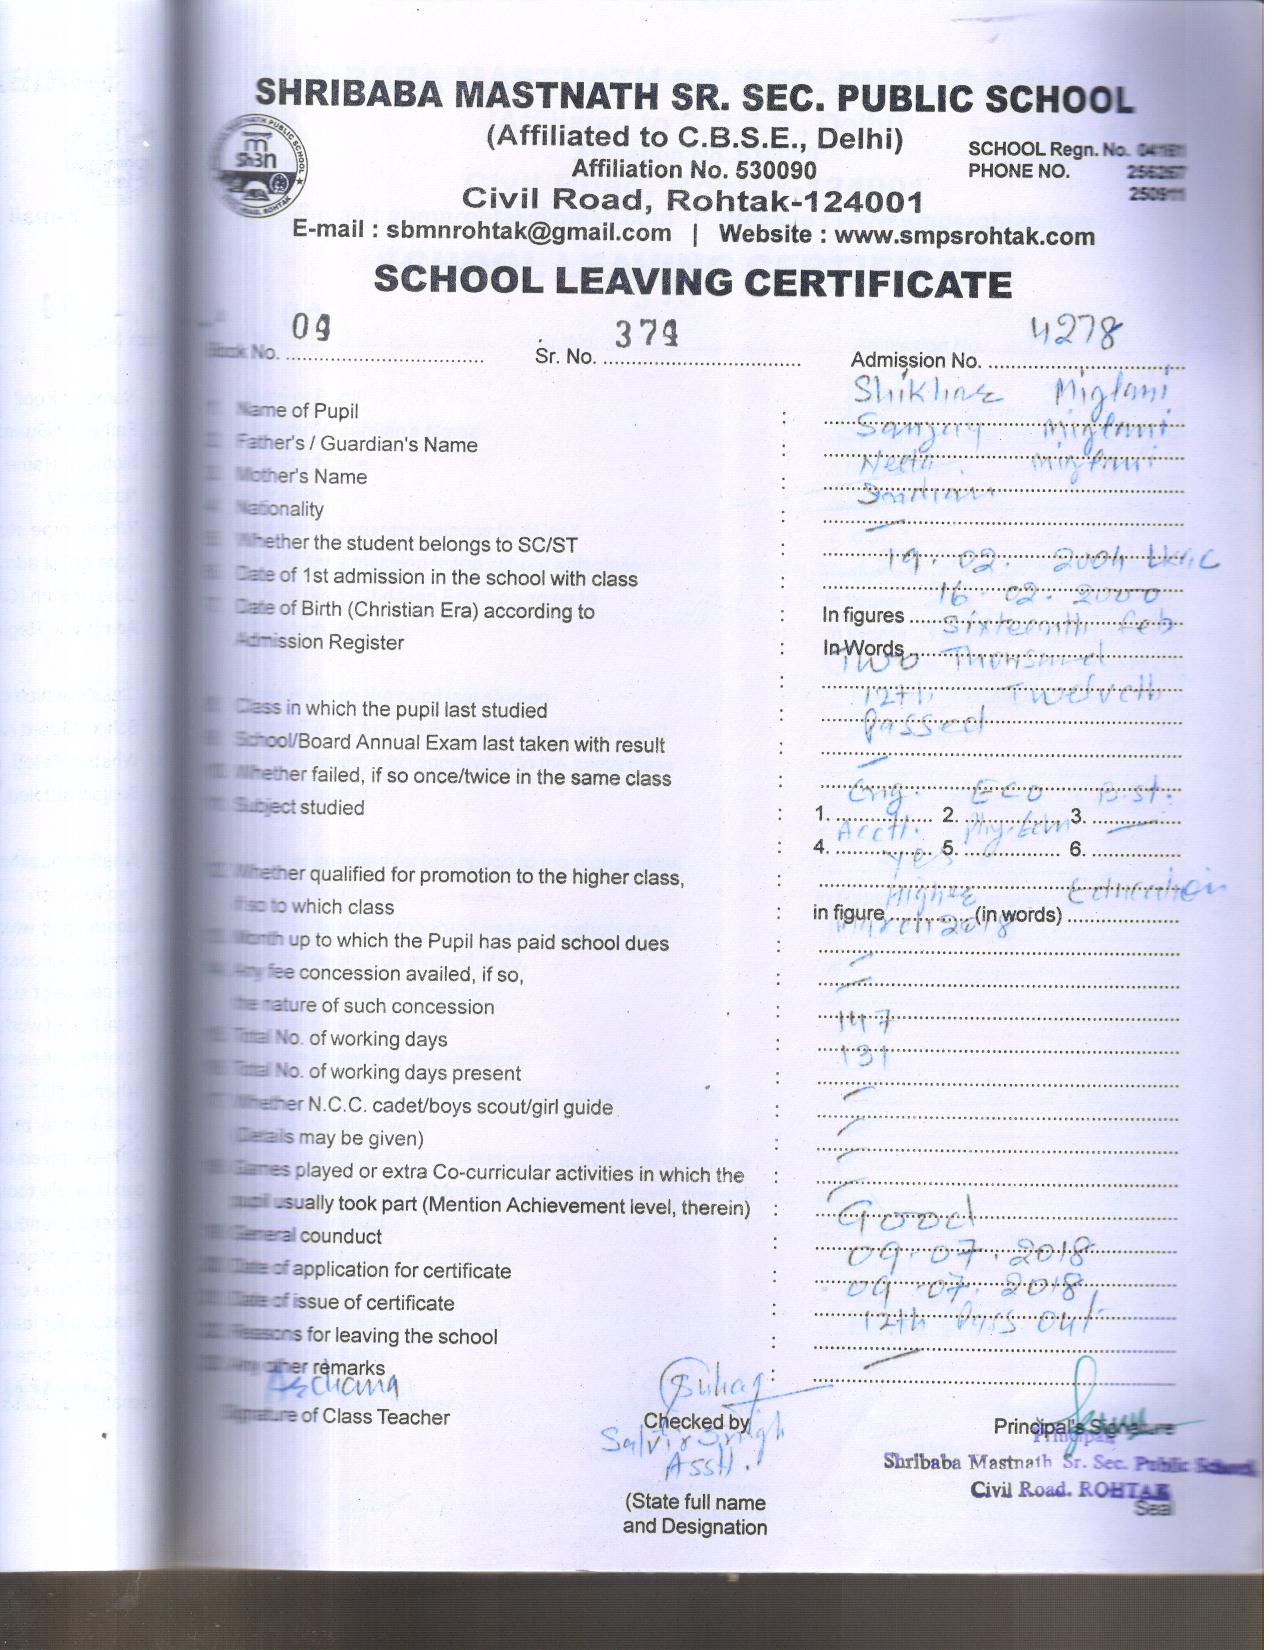 SHRIBABA MASTNATH SR. SEC. PUBLIC SCHOOL
(Affiliated to C.B.S.E., Delhi)
Affiliation No. 530090
SCHOOL Regn. No.
PHONE NO. 256267
Civil Road, Rohtak-124001
E-mail : sbmnrohtak@gmail.com | Website : www.smpsrohtak.com
SCHOOL LEAVING CERTIFICATE
Book No. 09 Sr. No. 374 Admission No. 4278
Name of Pupil : Shikhar Miglani
Father's / Guardian's Name : Sanjay Miglani
Mother's Name : Neetu Miglani
Nationality : Indian
Whether the student belongs to SC/ST : —
Date of 1st admission in the school with class : 19.02.2004 LKG
Date of Birth (Christian Era) according to : In figures 16.02.2000
Admission Register : In Words Sixteenth Feb
: Two Thousand
Class in which the pupil last studied : 12th Twelveth
School/Board Annual Exam last taken with result : Passed
Whether failed, if so once/twice in the same class : —
Subject studied : 1. Eng. 2. ECO 3. B.st.
: 4. Acctt. 5. Phy. Edn 6. —
Whether qualified for promotion to the higher class, : yes
if so to which class : in figure Higher (in words) Education
Month up to which the Pupil has paid school dues : March 2018
Any fee concession availed, if so, : —
the nature of such concession : —
Total No. of working days : 147
Total No. of working days present : 131
Whether N.C.C. cadet/boys scout/girl guide : —
Details may be given) : —
Games played or extra Co-curricular activities in which the : —
pupil usually took part (Mention Achievement level, therein) :
General counduct : Good
Date of application for certificate : 09.07.2018
Date of issue of certificate : 09.07.2018
Reasons for leaving the school : 12th Pass Out
Any other remarks : —
Archana
Signature of Class Teacher
Checked by
Asstt.
(State full name
and Designation
Principal's Signature
Principal
Shribaba Mastnath Sr. Sec. Public School
Civil Road. ROHTAK
Seal